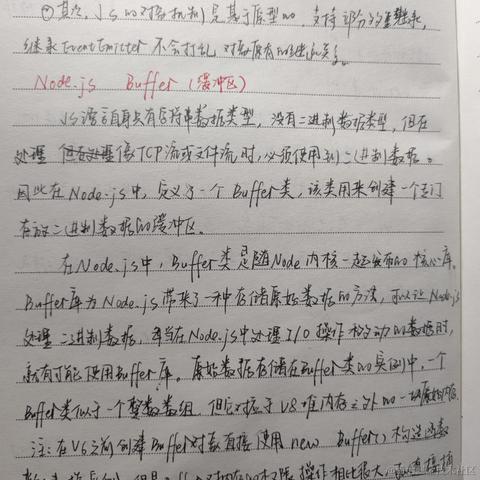 ②其次,JS的对象机制是基于原型的,支持部分的多重继承,
继承EventEmitter不会打乱对象原有的继承关系。
Node.js Buffer(缓冲区)
JS语言自身只有字符串数据类型,没有二进制数据类型,但在
处理像TCP流或文件流时,必须使用到二进制数据。
因此在Node.js中,定义了一个Buffer类,该类用来创建一个专门
存放二进制数据的缓冲区。
在Node.js中,Buffer类是随Node内核一起发布的核心库。
Buffer库为Node.js带来了一种存储原始数据的方法,可以让Node.js
处理二进制数据,每当在Node.js中处理I/O操作移动的数据时,
就有可能使用Buffer库。原始数据存储在Buffer类的实例中,一个
Buffer类似于一个整数数组,但它对应于V8堆内存之外的一块原始内存。
注:在V6之前创建Buffer对象直接使用new Buffer()构造函数
操作相比很大